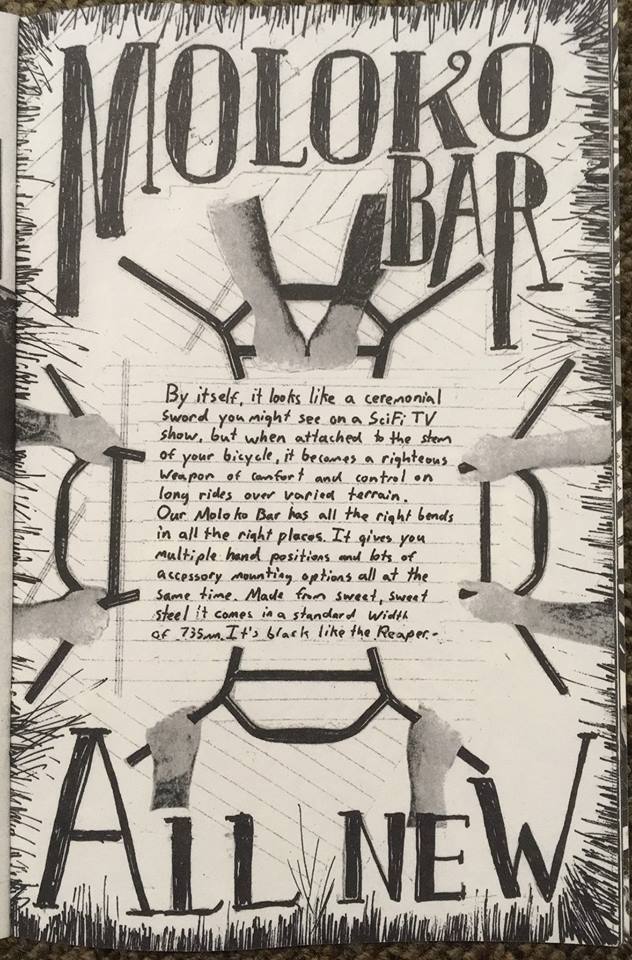 MOLOKO
BAR
By itself, it looks like a ceremonial
sword you might see on a SciFi TV
show, but when attached to the stem
of your bicycle, it becomes a righteous
weapon of comfort and control on
long rides over varied terrain.
Our Moloko Bar has all the right bends
in all the right places. It gives you
multiple hand positions and lots of
accessory mounting options all at the
same time. Made from sweet, sweet
steel it comes in a standard width
of 735mm. It's black like the Reaper.-
ALL NEW